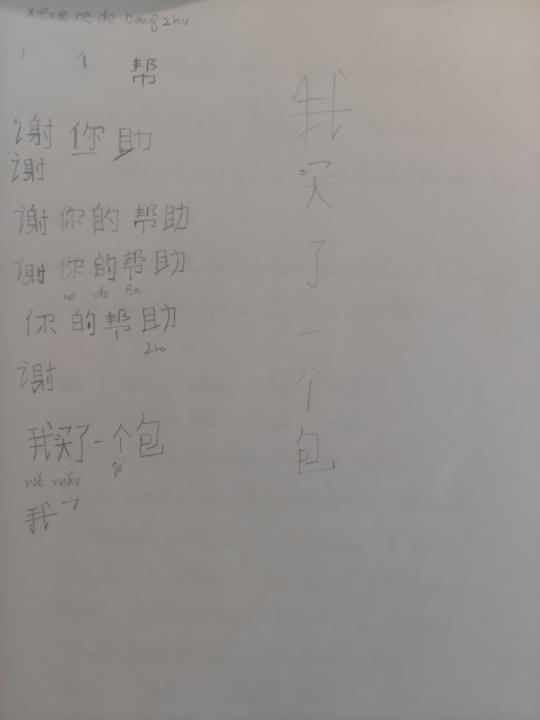 xiexie ne de bang zhu
亻 帮
谢 你 助
谢
谢你的帮助
谢你的帮助
ne de Ba
你的帮助
zhu
谢
我买了一个包
gè
wǒ mǎi
我乛
我
买
了
一
个
包